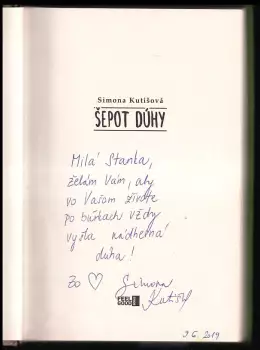 Simona Kutišová
ŠEPOT DÚHY
Milá Stanka,
želám Vám, aby
vo Vašom živote
po búrkach vždy
vyšla nádherná
dúha!
Zo ♡ Simona
Kutiš
FEEL
GOOD
9.6.2019